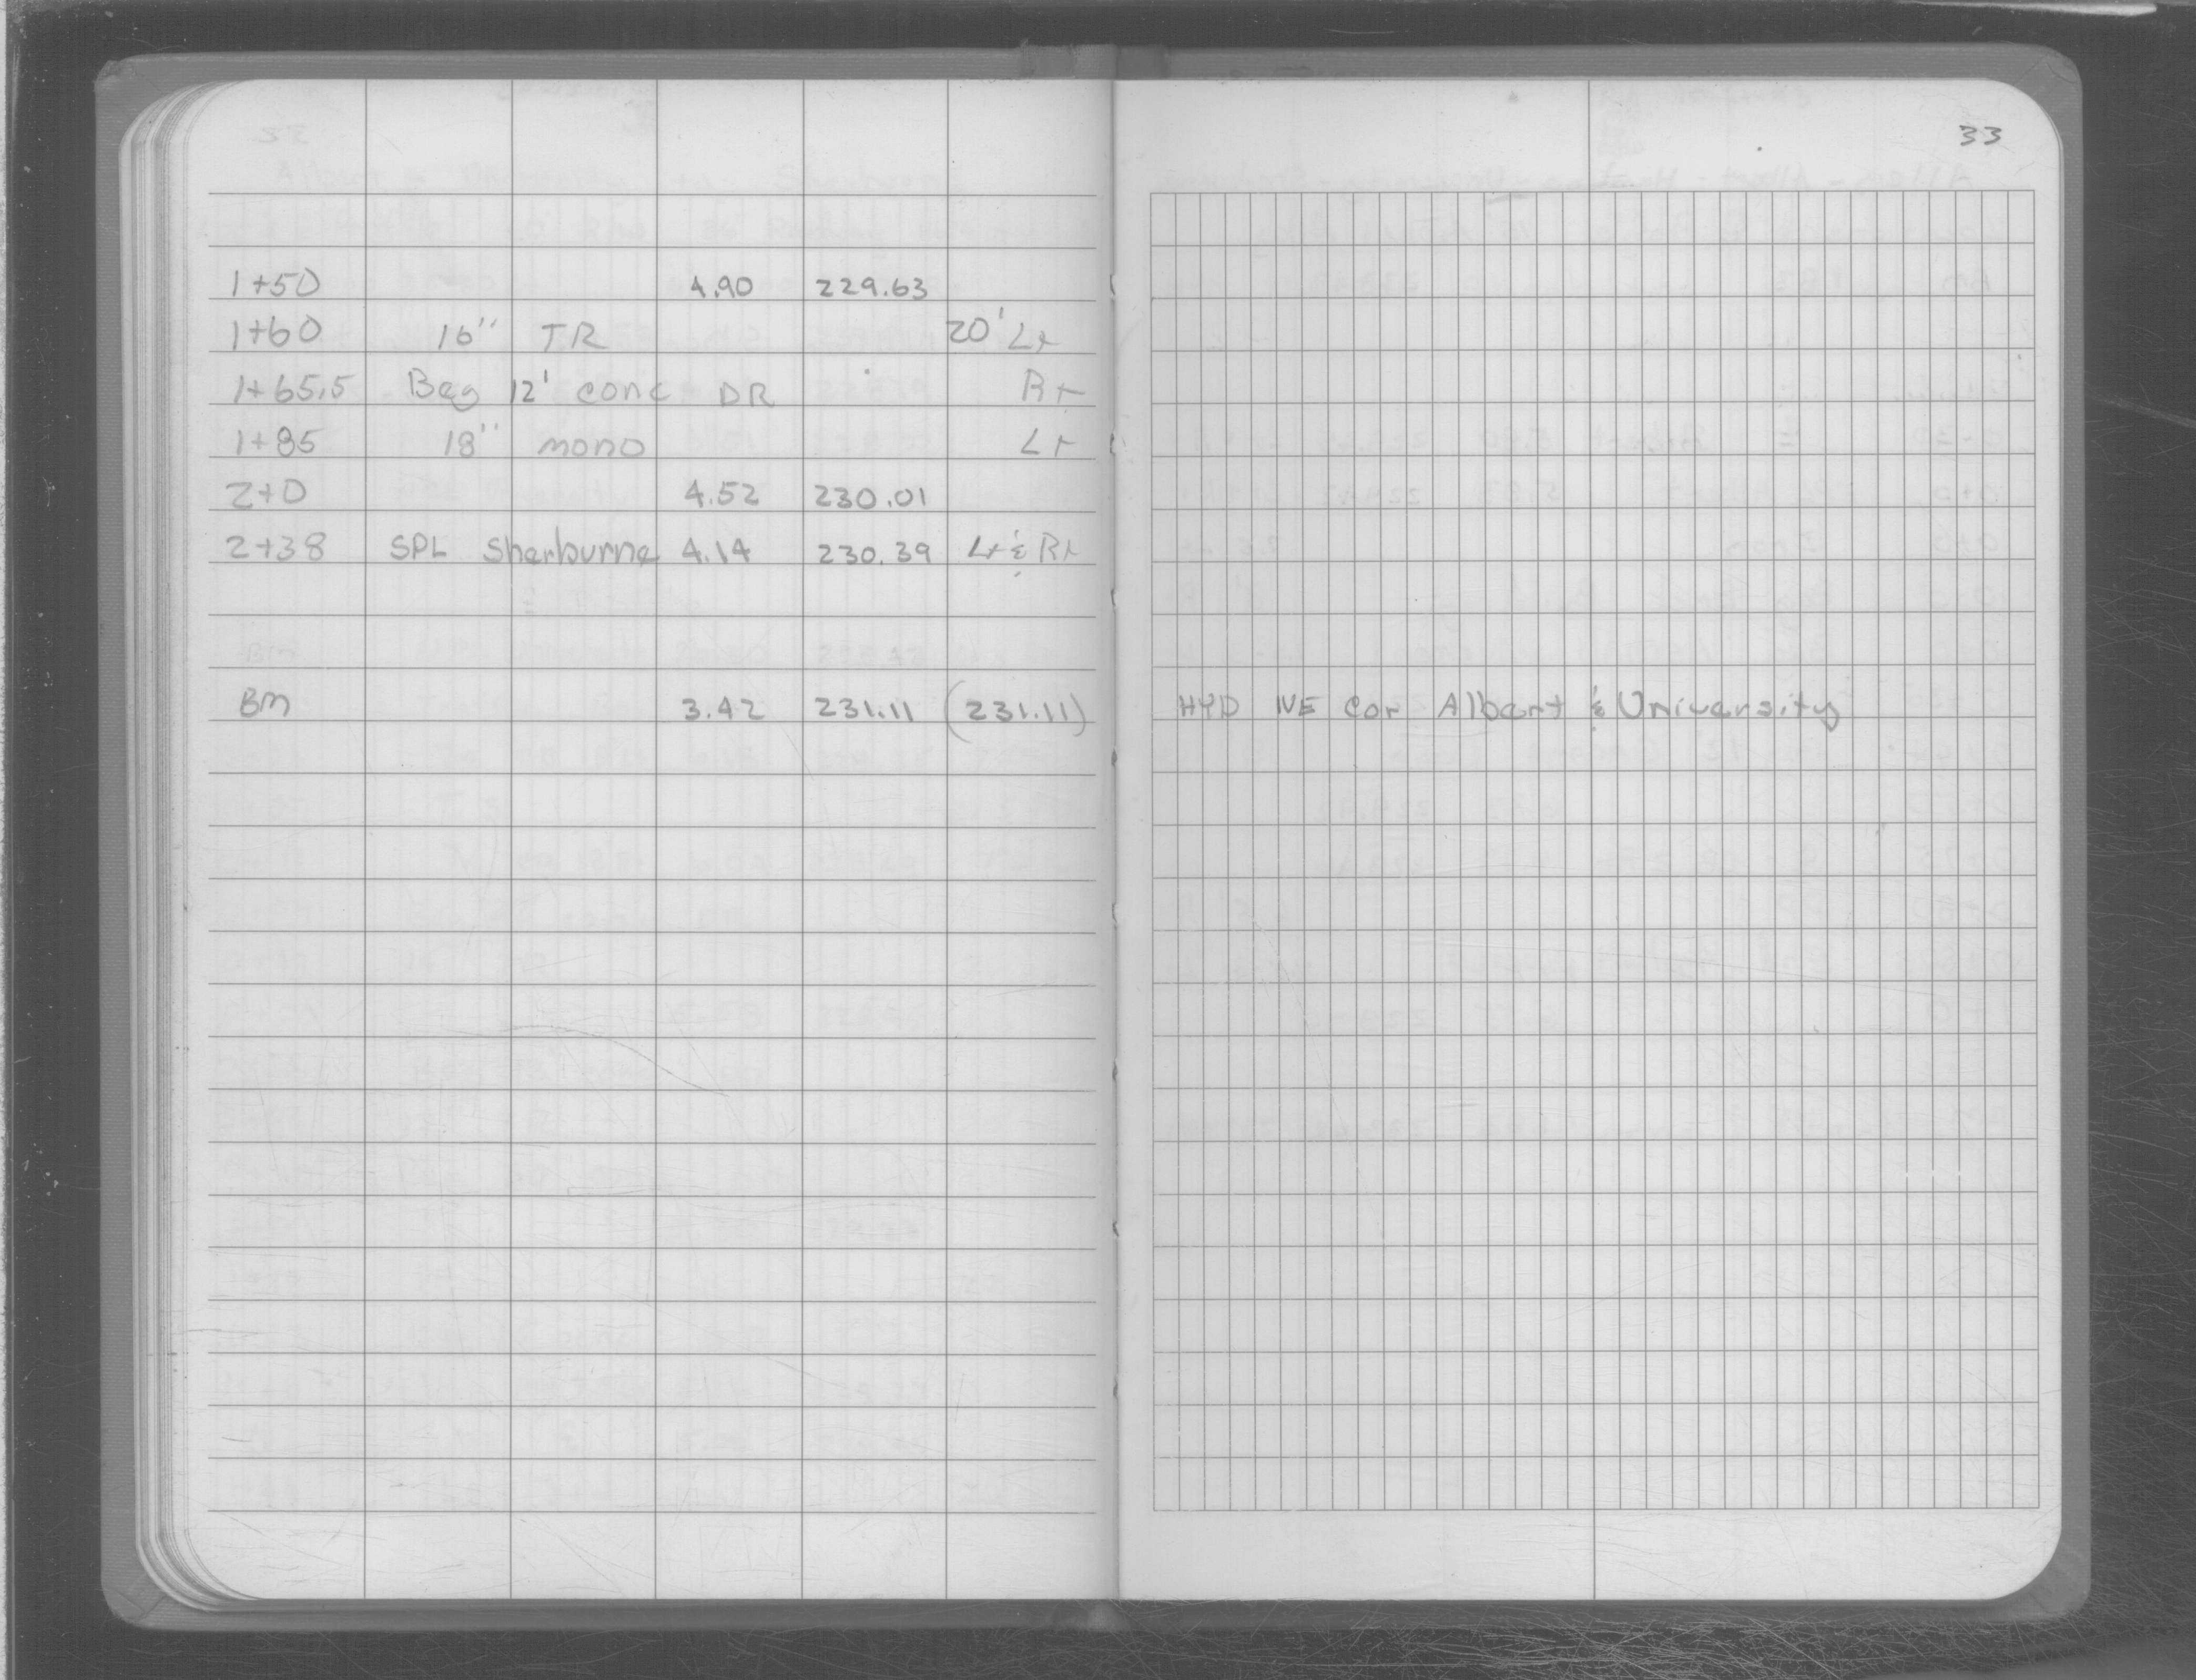 33
1+50 4.90 229.63
1+60 16" TR 20' Lt
1+65.5 Beg 12' conc DR Rt
1+85 18" mono Lt
2+0 4.52 230.01
2+38 SPL Sherburne 4.14 230.39 Lt & Rt
BM 3.42 231.11 (231.11) HYD NE Cor Albert & University